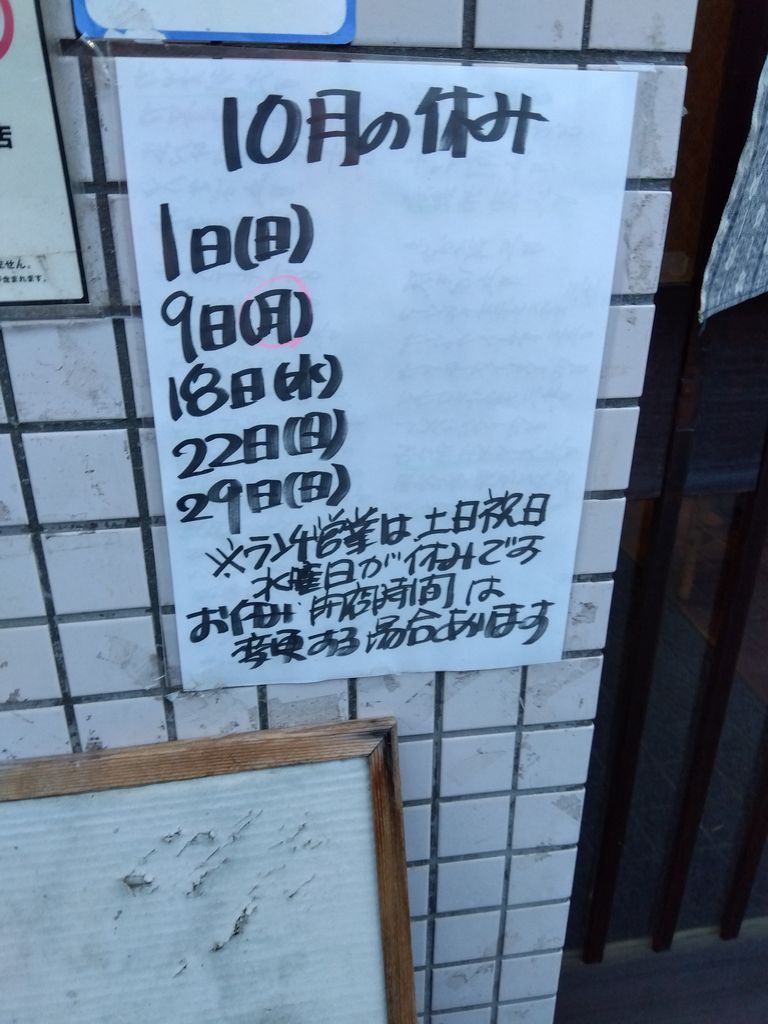 店
ません。
含まれます。
10月の休み
1日(日)
9日(月)
18日(水)
22日(日)
29日(日)
※ランチ営業は土日祝日
水曜日が休みです
お休み 開店時間は
変更する場合あります